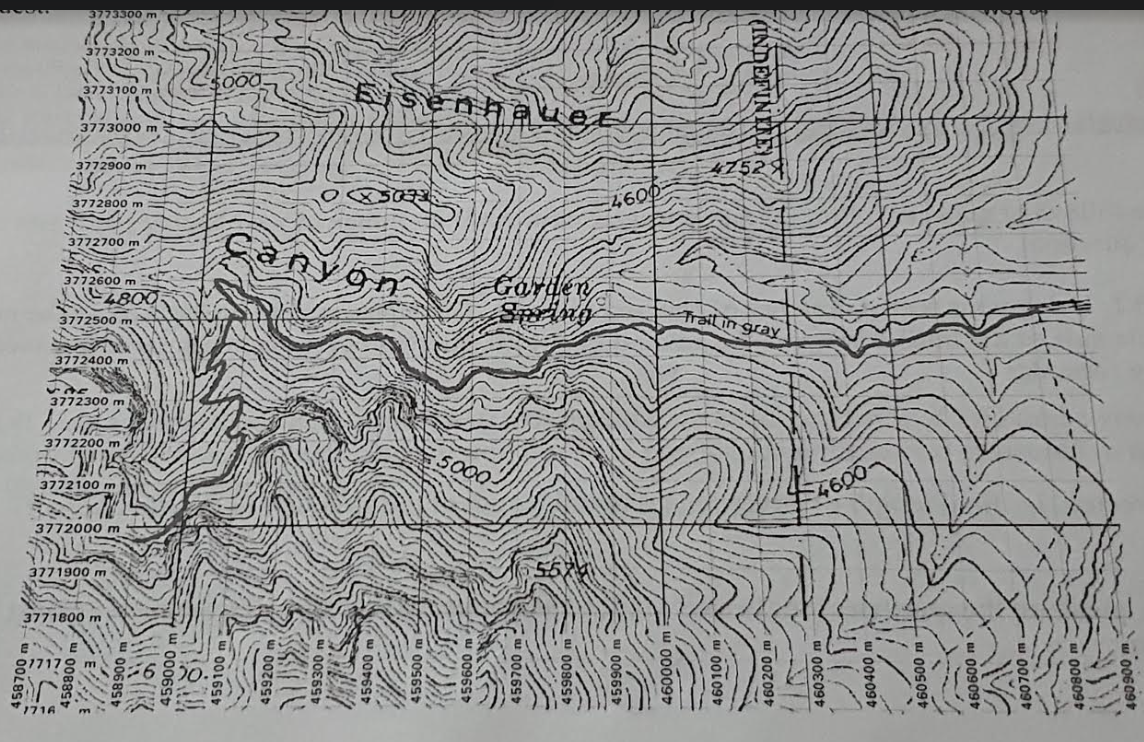 3773300 m
3773200 m
5000
3773100 m
Eisenhauer
(INDEFINITE)
3773000 m
3772900 m
4752
3772800 m
5033
4600
3772700 m
Canyon
3772600 m
4800
Garden
Spring
3772500 m
Trail in gray
3772400 m
3772300 m
3772200 m
5000
3772100 m
4600
3772000 m
3771900 m
5574
3771800 m
458700 m
458800 m
458900 m
459000 m
459100 m
459200 m
459300 m
459400 m
459500 m
459600 m
459700 m
459800 m
459900 m
460000 m
460100 m
460200 m
460300 m
460400 m
460500 m
460600 m
460700 m
460800 m
460900 m